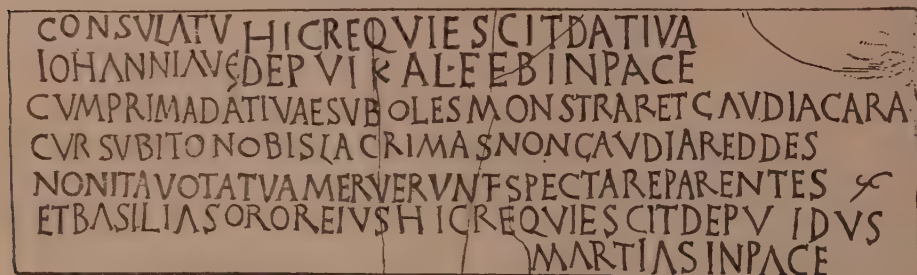 CONSVLATV HICREQVIESCITDATIVA
IOHANNIAVG DEPVIKALFEBINPACE
CVMPRIMADATIVAESVBOLESMONSTRARETGAVDIACARA
CVRSVBITONOBISLACRIMASNONGAVDIAREDDES
NONITAVOTATVAMERVERVNTSPECTAREPARENTES
ETBASILIASOROREIVSHICREQVIESCITDEPV IDVS
MARTIASINPACE